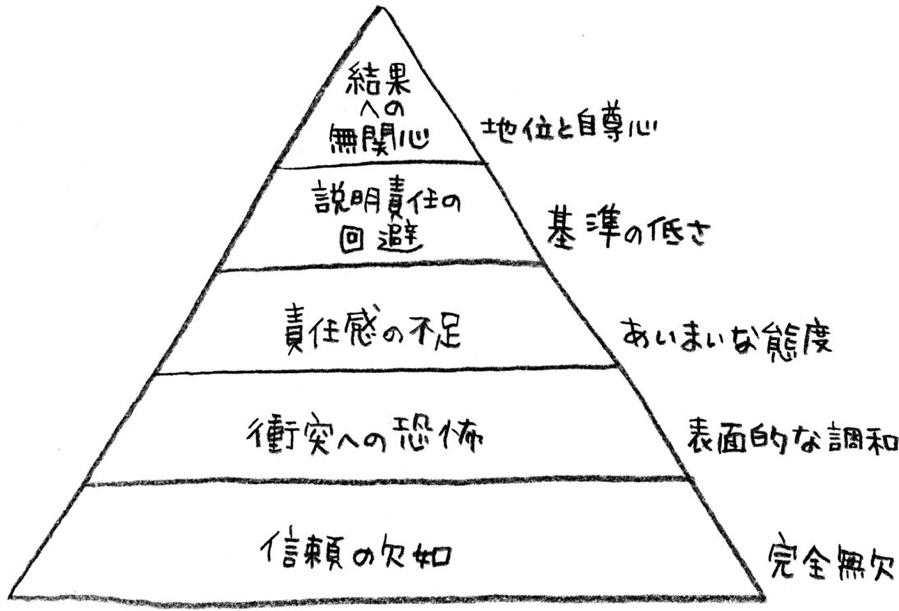 結果
への
無関心
地位と自尊心
説明責任の
回避
基準の低さ
責任感の不足
あいまいな態度
衝突への恐怖
表面的な調和
信頼の欠如
完全無欠